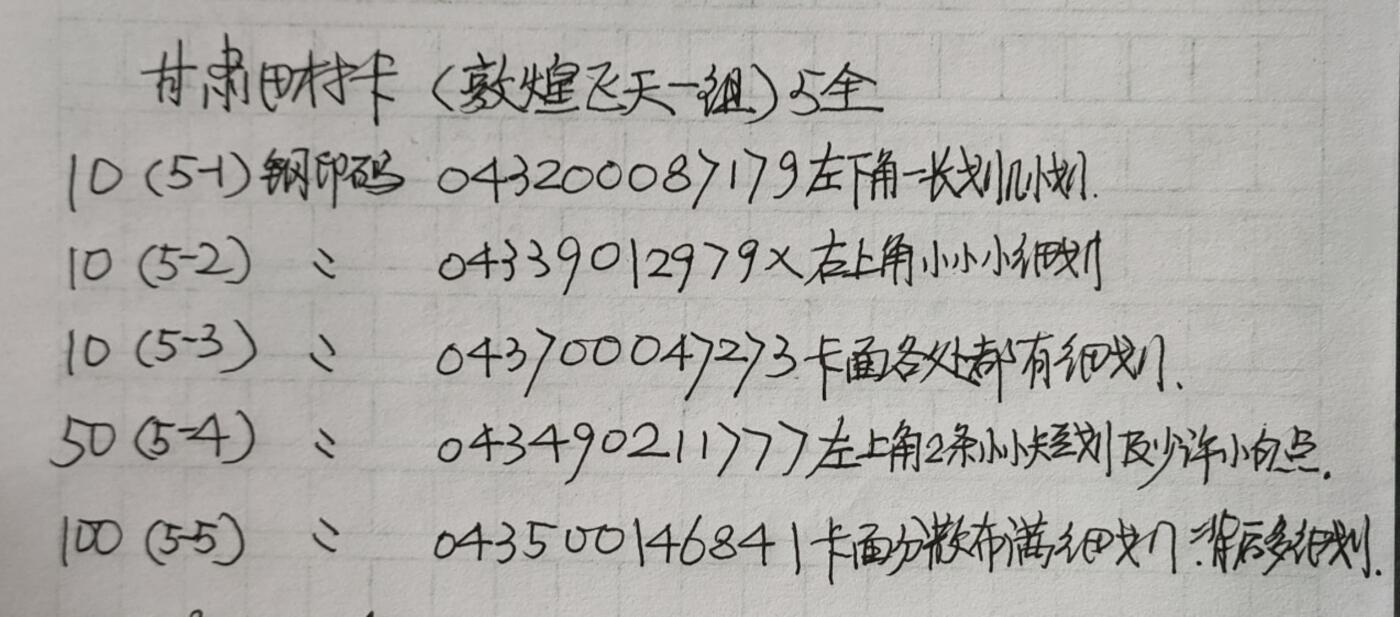 甘肃田村卡（敦煌飞天一组）5全
10（5-1）钢印码 043200087179左下角一长划几小划.
10（5-2） 〃 04339012979×右上角小小小细划
10（5-3） 〃 043700047273卡面各处都有细划.
50（5-4） 〃 043490211777左上角2条小小短划及少许小白点.
100（5-5） 〃 043500146841卡面分散布满细划.背后多细划.